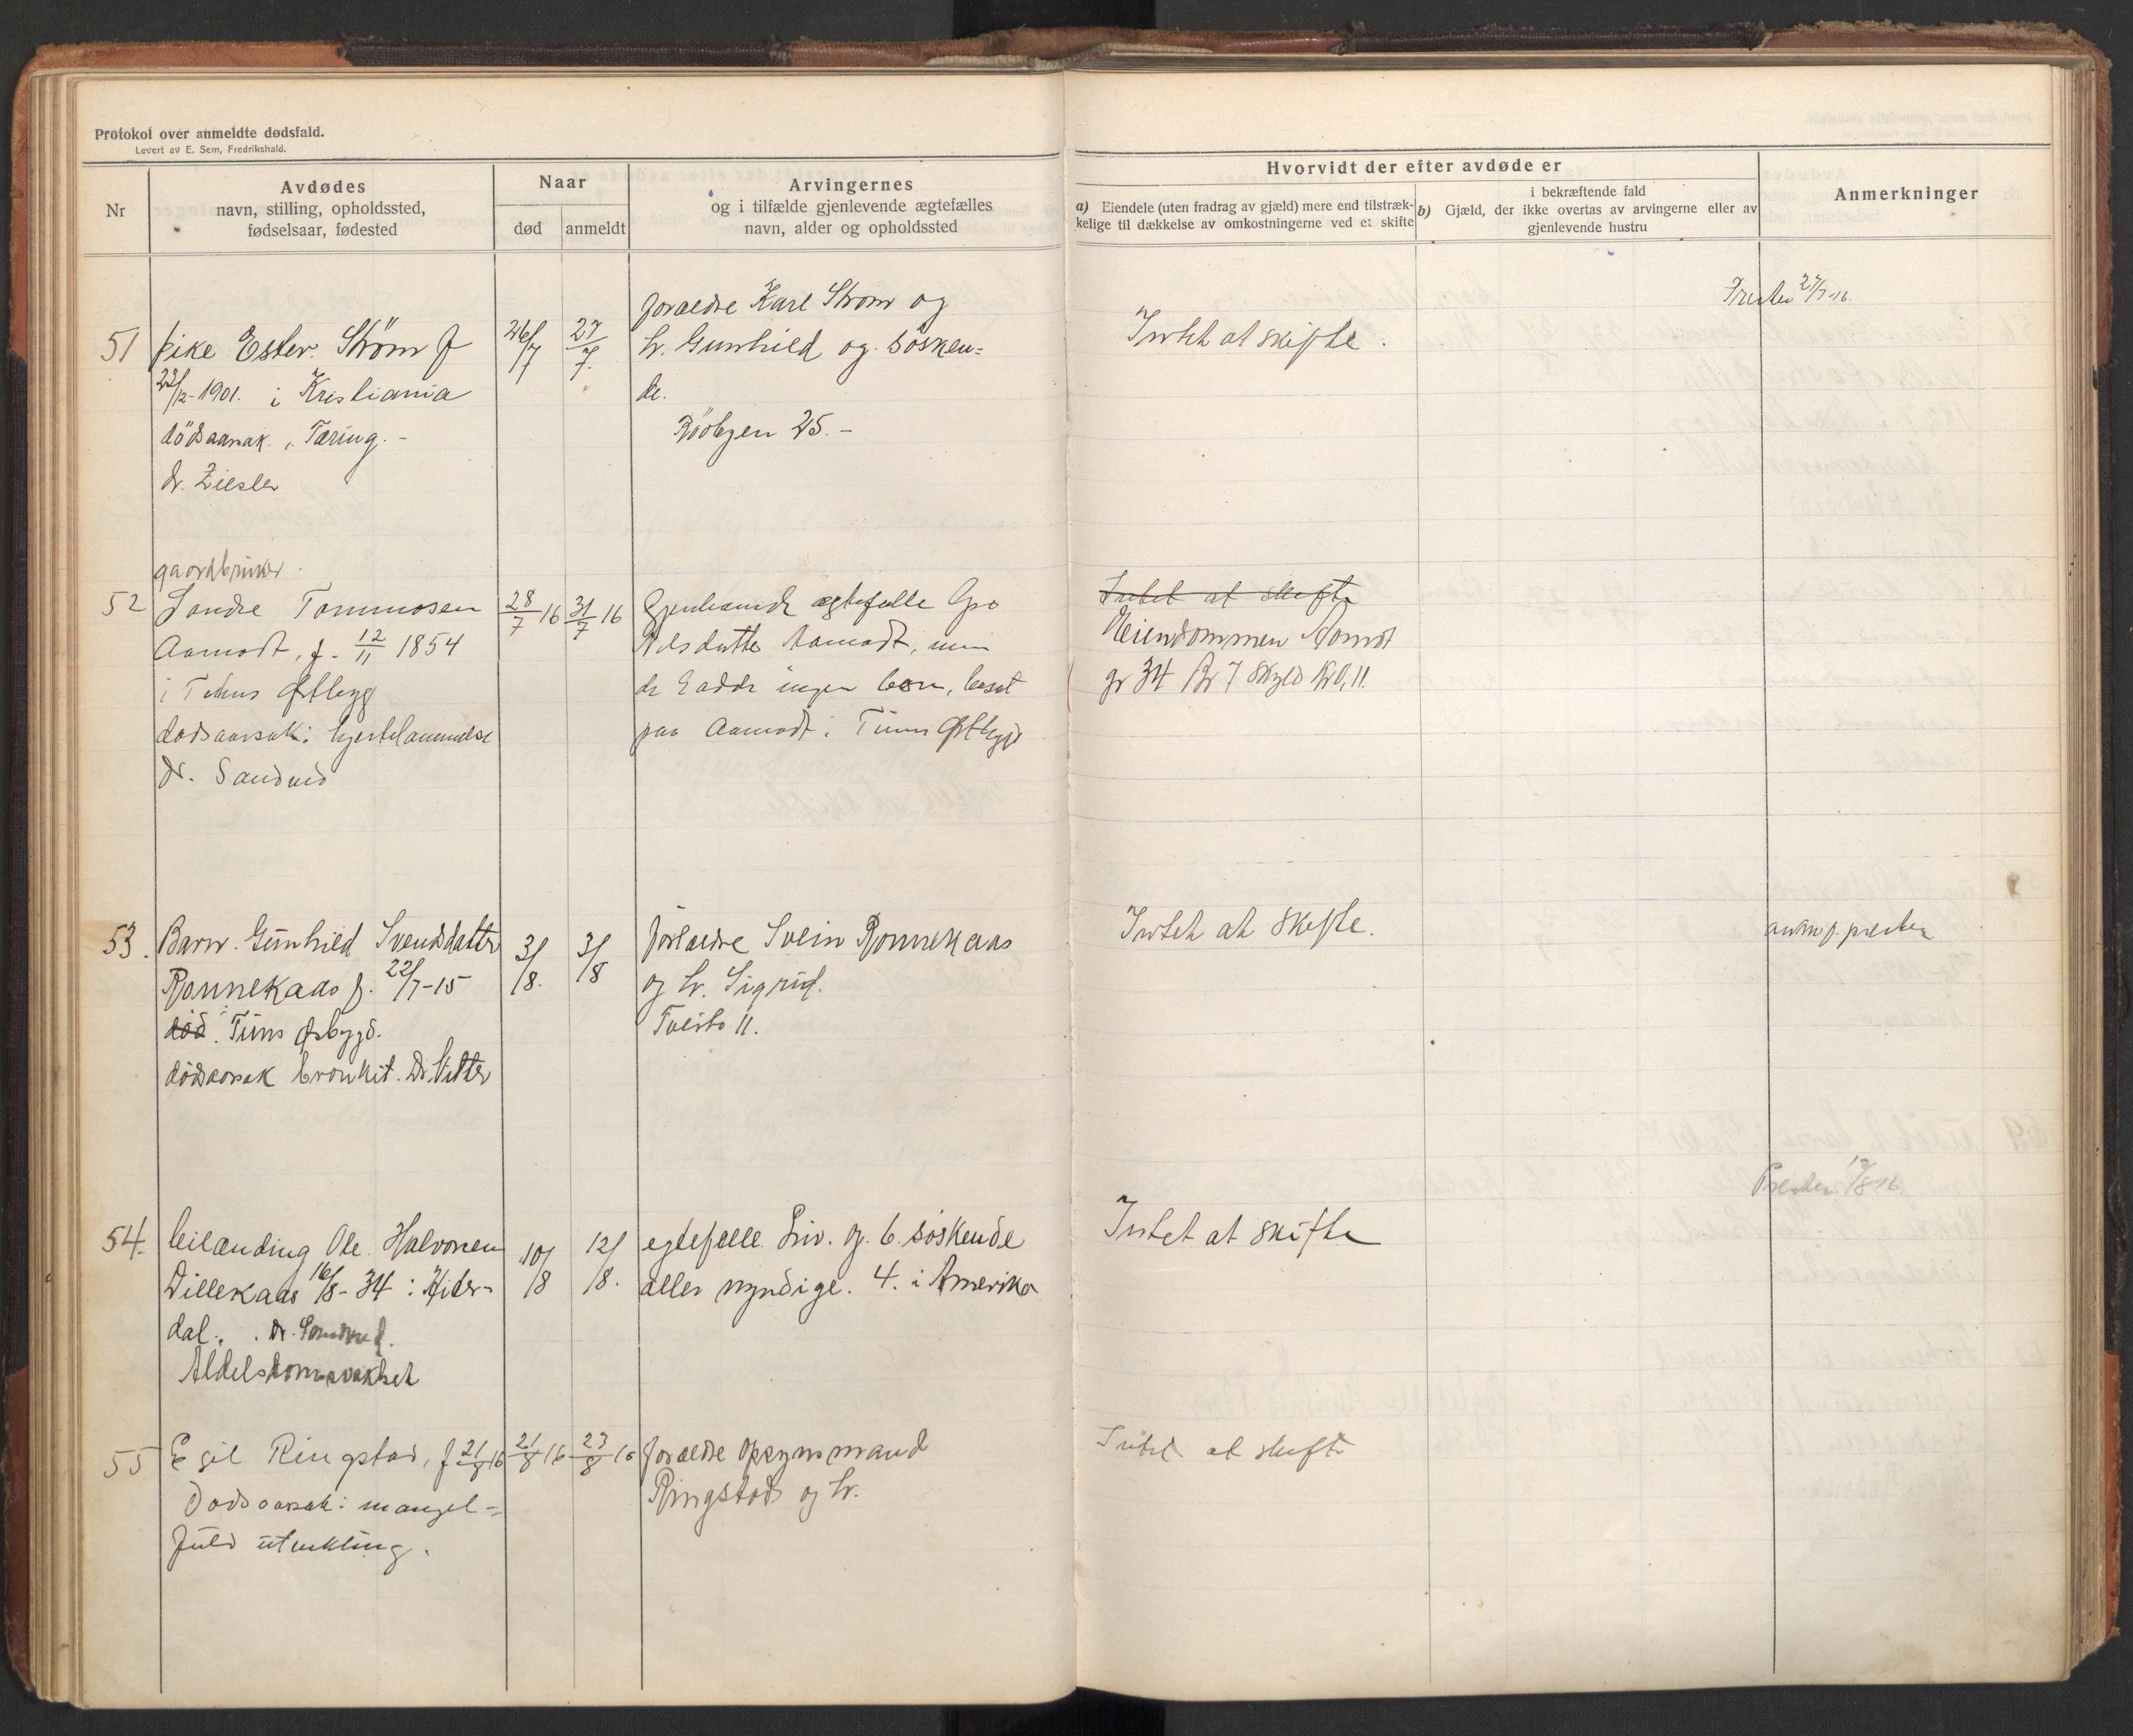 Protokol over anmeldte dødsfald.
Levert av E. Sem, Fredrikshald.
Nr
Avdødes
navn, stilling, opholdssted,
fødselsaar, fødested
Naar
død
anmeldt
Arvingernes
og i tilfælde gjenlevende ægtefælles
navn, alder og opholdssted
Hvorvidt der efter avdøde er
a) Eiendele (uten fradrag av gjæld) mere end tilstræk-
kelige til dækkelse av omkostningerne ved et skifte
i bekræftende fald
b) Gjæld, der ikke overtas av arvingerne eller av
gjenlevende hustru
Anmerkninger
51
pike Ester Strøm f
23/12-1901. i Kristiania
dödsaarsak, Tæring. -
dr. Ziesler
26/7
27/7.
foraeldre Karl Strøm og
h. Gunhild og søsken=
de.
Rööbyen 25. -
Intet at skifte.
Presten 27/7-16.
52
gaardbruker
Sondre Tommosen
Aamodt, f. 12/11 1854
i Tinns Østbygd
dødsaarsak: hjertelammelse
Dr. Sandvid
28/7 16
31/7 16
Gjenlevende ægtefælle Gro
Nilsdatter Aamodt,
de hadde ingen børn, bosat
paa Aamodt i Tinns Østbygd
Intet at skifte
Eiendommen Aamot
gr 34 Br 7 Skyld Kr 0,11.
53.
Barn. Gunhild Svendsdatter
Rønnekaas f. 22/7-15
død. Tins Øsbygd.
dödsaarsak bronkit. Dr. Vetter
3/8.
3/8
forældre Svein Rønnekaas
og h. Sigrid.
Tveito 11.
Intet at skifte.
anm f. presten
54.
Leilænding Ole. Halvorsen
Dillekaas 16/8-34 i Hider-
dal. . Dr. Sandvid.
Aldelsdomsvakhet
10/8
12/8.
egtefælle Liv. og. 6. söskende
aller myndige. 4. i Amerika
Intet at skifte
Presten 12/8-16.
55
Egil Ringstad, f 21/8 16
Dødsaarsak: mangel=
fuld utvikling.
21/8 16
23/8 16
foraeldre Opsynsmand
Ringstad og h.
Intet at skifte